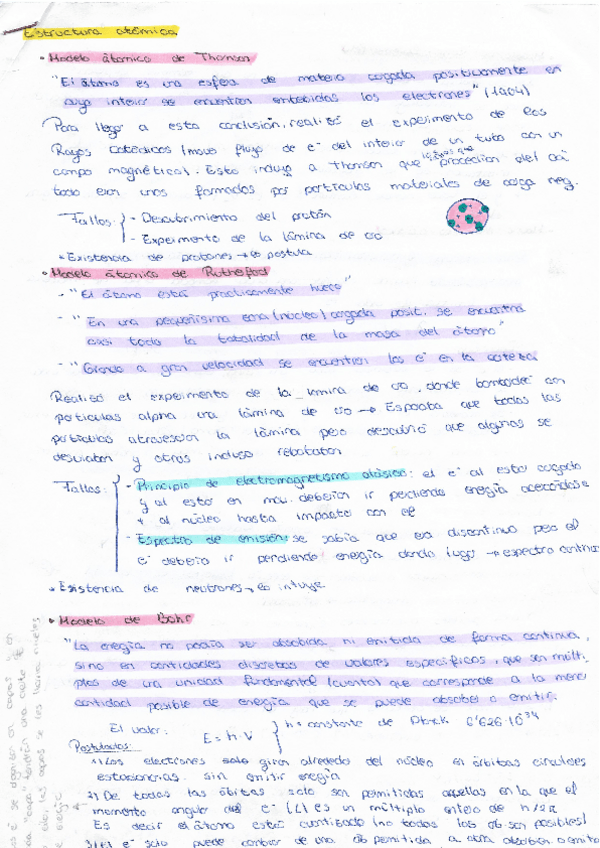 Estructura atómica
• Modelo átomico de Thomson
"El átomo es una esfera de materia cargada positivamente en
cuyo interior se encuentran embebidos los electrones" (1904)
Para llegar a esta conclusión, realizó el experimento de los
Rayos Catódicos (mover flujo de e⁻ del interior de un tubo con un
campo magnético). Esto indujo a Thomson que los rayos que procedían del cá
todo eran unos formados por partículas materiales de carga neg.
Fallos: - Descubrimiento del protón
- Experimento de la lámina de oro
* Existencia de protones → se postula
• Modelo átomico de Rutherford
- "El átomo está practicamente hueco"
- "En una pequeñísima zona (núcleo) cargada posit. se encuentra
casi toda la totalidad de la masa del átomo"
- "Girando a gran velocidad se encuentran los e⁻ en la corteza
Realizó el experimento de la lámina de oro, donde bombardeó con
partículas alpha una lámina de oro → Esperaba que todas las
partículas atravesaran la lámina pero descubrió que algunas se
desviaban y otras incluso rebotaban
Fallos: - Principio de electromagnetismo clásico: el e⁻ al estar cargado
y al estar en mov. deberían ir perdiendo energía acercándose
+ al núcleo hasta impactar con él
- Espectro de emisión: se sabía que era discontinuo pero el
e⁻ debería ir perdiendo energía dando lugar → espectro continuo
* Existencia de neutrones → se intuye
• Modelo de Bohr
"La energía no podía ser absorbida ni emitida de forma continua,
sino en cantidades discretas de valores específicos, que son múlti-
plos de una unidad fundamental (cuanto) que corresponde a la menor
cantidad posible de energía que se puede absorber o emitir.
El valor: E = h·V } h = constante de Planck 6'626·10³⁴
Postulados:
1) Los electrones solo giran alrededor del núcleo en órbitas circulares
estacionarias sin emitir energía
2) De todas las órbitas solo son permitidas aquellas en la que el
momento angular del e⁻ (L) es un múltiplo entero de h/2π
Es decir el átomo está cuantizado (no todas las orb son posibles)
3) El e⁻ solo puede cambiar de una orb permitida a otra absorben o emiten